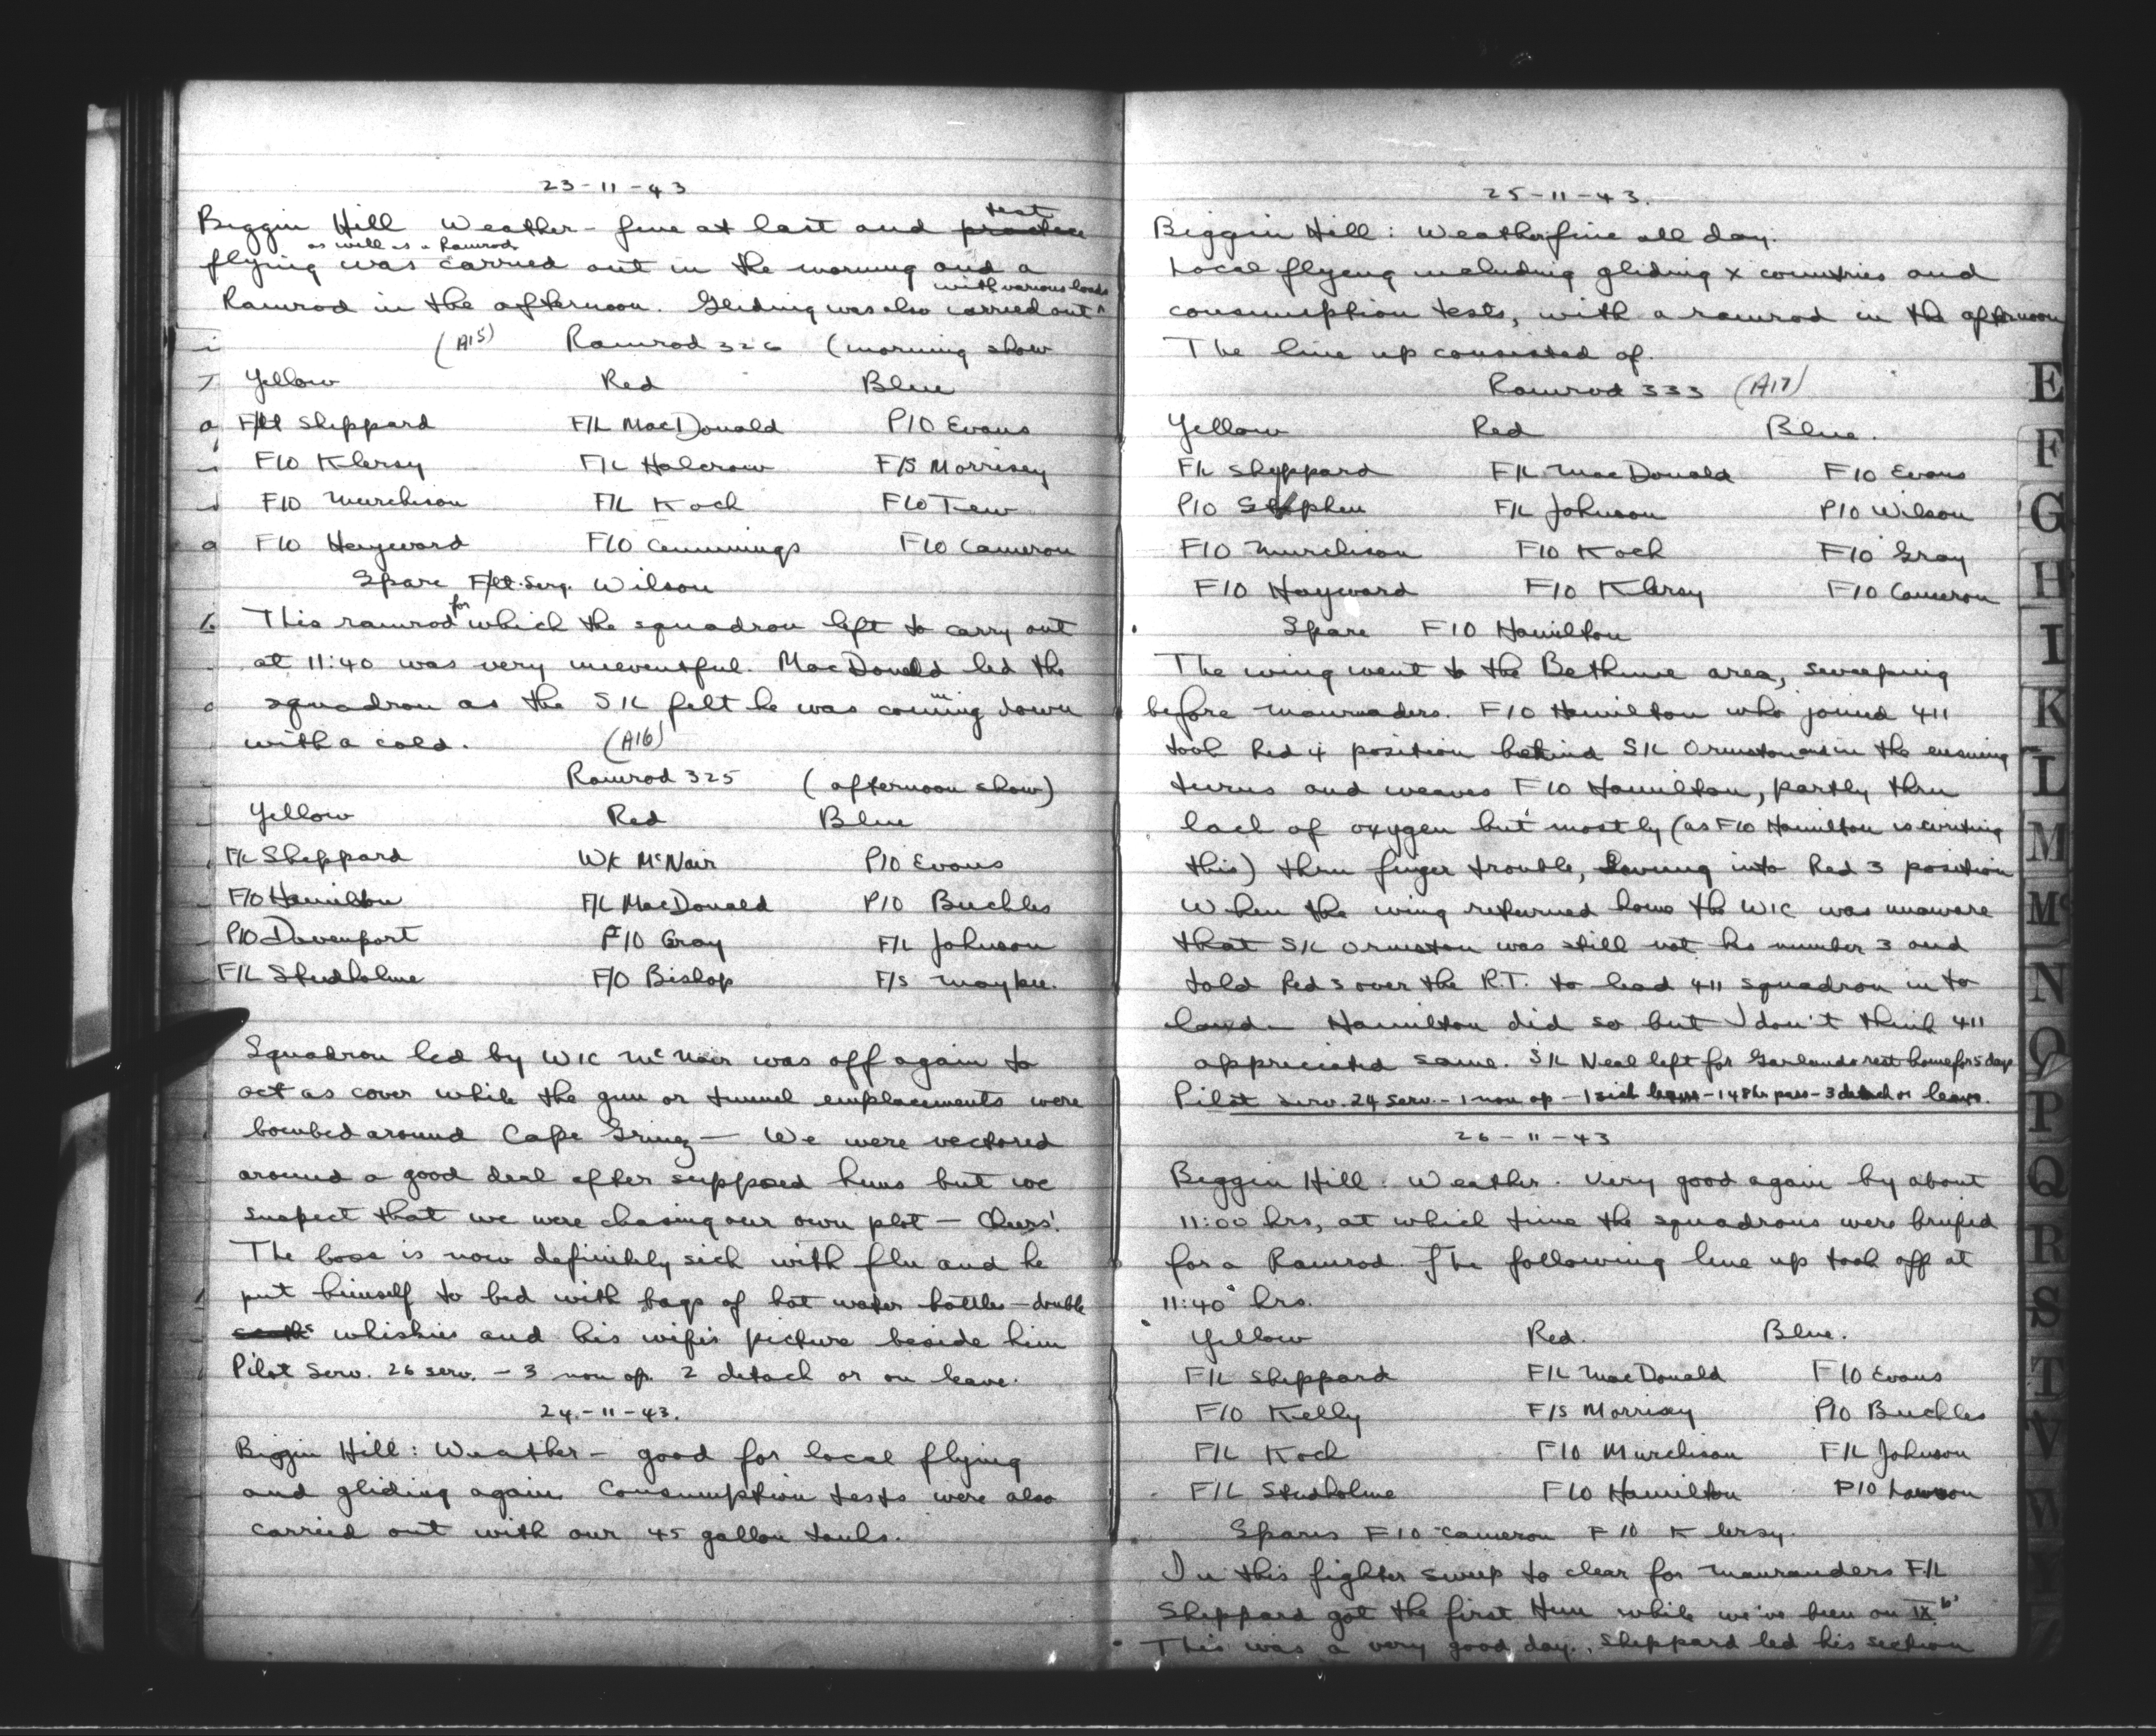 23-11-43
Biggin Hill Weather - fine at last and test
flying as well as a Ramrod was carried out in the morning and a
Ramrod in the afternoon. Gliding was also carried out with various loads
(A15) Ramrod 326 (morning show
Yellow Red Blue
F/Lt Sheppard F/L MacDonald P/O Evans
F/O Klersy F/L Halcrow F/S Morrisey
F/O Murchison F/L Koch F/O Tew
F/O Hayward F/O Cummings F/O Cameron
Spare F/Lt. Serg. Wilson
This ramrod for which the squadron left to carry out
at 11:40 was very uneventful. MacDonald led the
squadron as the S/L felt he was coming down
with a cold. (A16)
Ramrod 325 (afternoon show)
Yellow Red Blue
F/L Sheppard W/C McNair P/O Evans
F/O Hamilton F/L MacDonald P/O Buckles
P/O Davenport F/O Gray F/L Johnson
F/L Studholme F/O Bishop F/S Maybee.
Squadron led by W/C McNair was off again to
act as cover while the gun or tunnel emplacements were
bombed around Cape Grinez — We were vectored
around a good deal after supposed huns but we
suspect that we were chasing our own plot — Cheers!
The boss is now definitely sick with flu and he
put himself to bed with bags of hot water bottles - double
whiskies and his wife's picture beside him
Pilot Serv. 26 serv. - 3 non op. 2 detach or on leave.
24-11-43.
Biggin Hill: Weather - good for local flying
and gliding again. Consumption tests were also
carried out with our 45 gallon tanks.
25-11-43.
Biggin Hill: Weather fine all day.
Local flyeng including gliding x countries and
consumption tests, with a ramrod in the afternoon
The line up consisted of.
Ramrod 333 (A17)
Yellow Red Blue.
F/L Sheppard F/L MacDonald F/O Evans
P/O Stephen F/L Johnson P/O Wilson
F/O Murchison F/O Koch F/O Gray
F/O Hayward F/O Klersy F/O Cameron
Spare F/O Hamilton
The wing went to the Bethune area, sweeping
before Mauraders. F/O Hamilton who joined 411
took Red 4 position behind S/L Ormston and in the ensuing
turns and weaves F/O Hamilton, partly thru
lack of oxygen but mostly (as F/O Hamilton is writing
this) thru finger trouble, into Red 3 position
When the wing returned home the W/C was unaware
that S/L Ormston was still not his number 3 and
told Red 3 over the R.T. to lead 411 squadron in to
land - Hamilton did so but I don't think 411
appreciated same. S/L Neal left for Garlands rest home for 5 days
Pilot serv. 24 serv. - 1 non op - 1 sick leave - 1 48 hr pass - 3 detach or leave.
26-11-43
Biggin Hill. Weather. Very good again by about
11:00 hrs, at which time the squadrons were briefed
for a Ramrod. The following line up took off at
11:40 hrs.
Yellow Red. Blue.
F/L Sheppard F/L MacDonald F/O Evans
F/O Kelly F/S Morrisey P/O Buckles
F/L Koch F/O Murchison F/L Johnson
F/L Studholme F/O Hamilton P/O Lawson
Spares F/O Cameron F/O Klersy.
In this fighter sweep to clear for Mauranders F/L
Sheppard got the first Hun while we've been on IX b's
This was a very good day. Sheppard led his section
E
F
G
H
I
K
L
M
Mc
N
O
P
Q
R
S
T
V
W
Y
Z